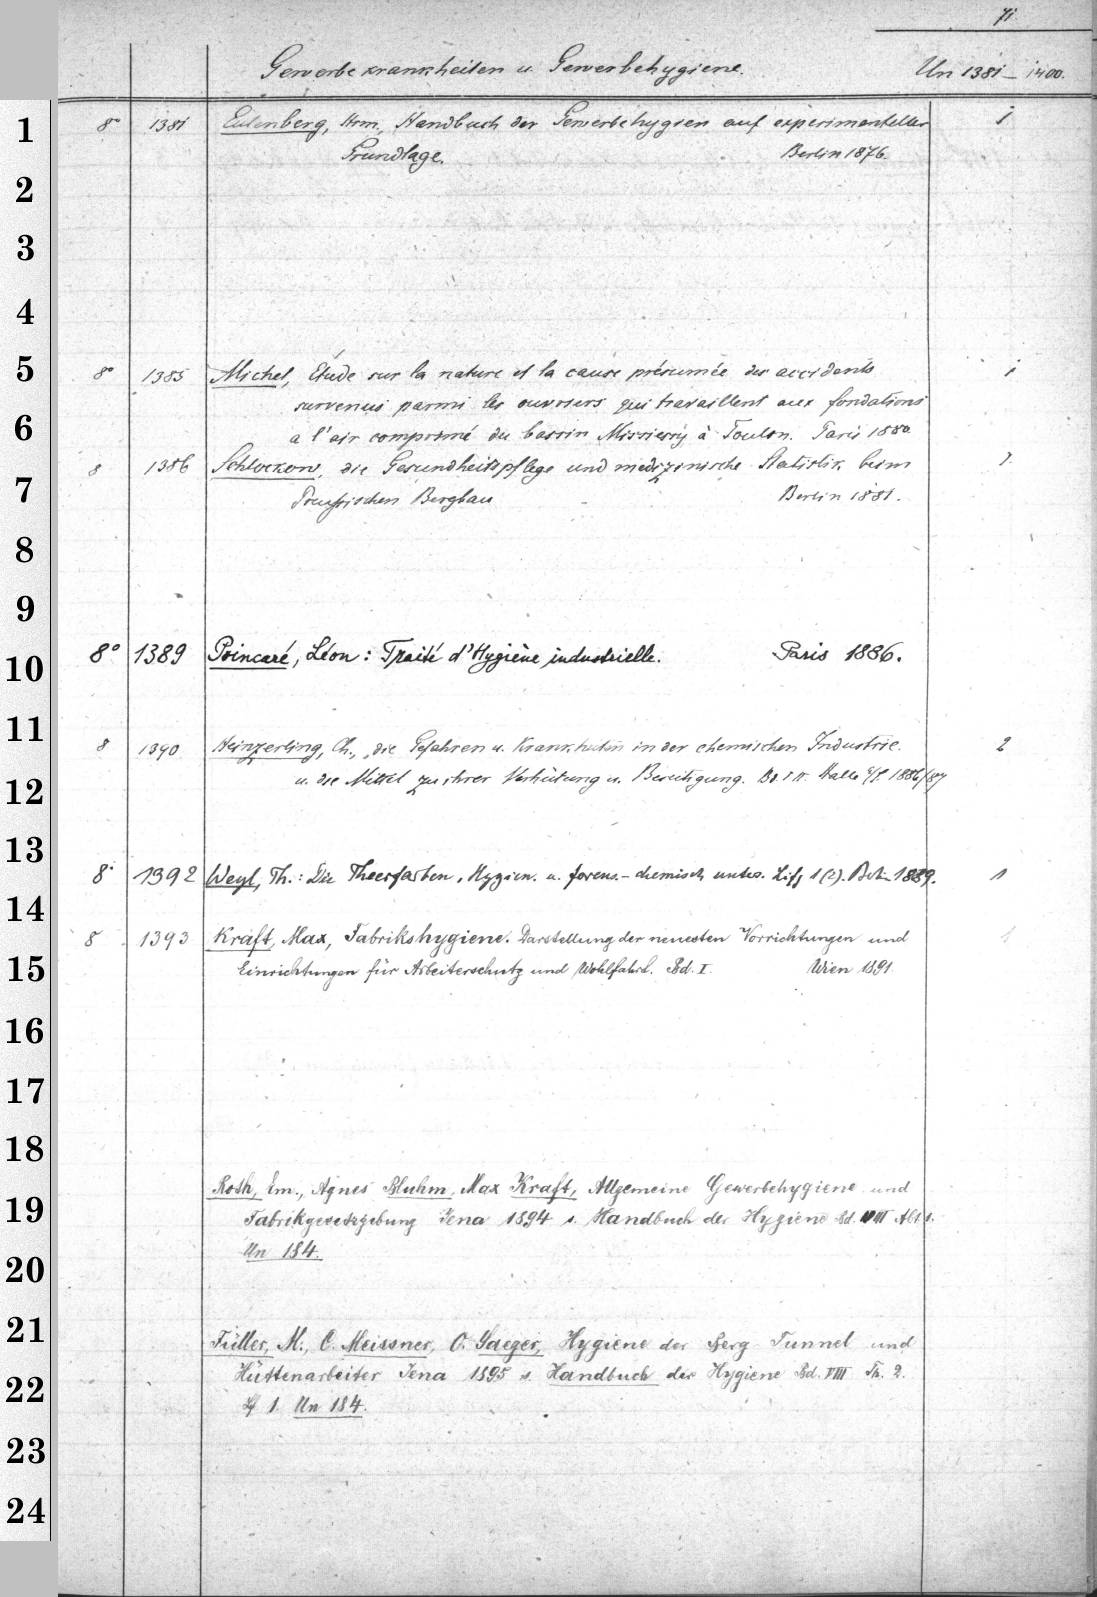 71
Gewerbekrankheiten u. Gewerbehygiene. Un 1381 – 1400.
1 8° 1381 Eulenberg, Hrm., Handbuch der Gewerbehygien auf experimenteller 1
Grundlage. Berlin 1876.
2
3
4
5 8° 1385 Michel, Étude sur la nature et la cause présumée des accidents 1
survenus parmi les ouvriers qui travaillent aux fondations
6 a l'air comprimé du bassin Missiessy à Toulon. Paris 1880
8 1386 Schlockow, die Gesundheitspflege und medizinische Statistik beim 1.
7 Preußischen Bergbau Berlin 1881.
8
9
10 8° 1389 Poincaré, Léon: Traité d'Hygiène industrielle. Paris 1886.
11 8 1390 Heinzerling, Ch., die Gefahren u. Krankheiten in der chemischen Industrie. 2
12 u. die Mittel zu ihrer Verhütung u. Beseitigung. Bd. I II. Halle a/S. 1886/87
13 8° 1392 Weyl, Th.: Die Theerfarben, Hygien. u. forens.-chemisch unters. Lifg 1(2). Berlin 1889. 1
14 8 1393 Kraft, Max, Fabrikshygiene. Darstellung der neuesten Vorrichtungen und 1
15 Einrichtungen für Arbeiterschutz und Wohlfahrt. Bd. I. Wien 1891
16
17
18
Roth, Em., Agnes Bluhm, Max Kraft, Allgemeine Gewerbehygiene und
19 Fabrikgesetzgebung Jena 1894 s. Handbuch der Hygiene Bd. VIII Abt 1.
Un 184.
20
21 Füller, M., C. Meissner, O. Saeger, Hygiene der Berg Tunnel und
22 Hüttenarbeiter Jena 1895 s. Handbuch der Hygiene Bd. VIII Th. 2.
Lf 1. Un 184.
23
24